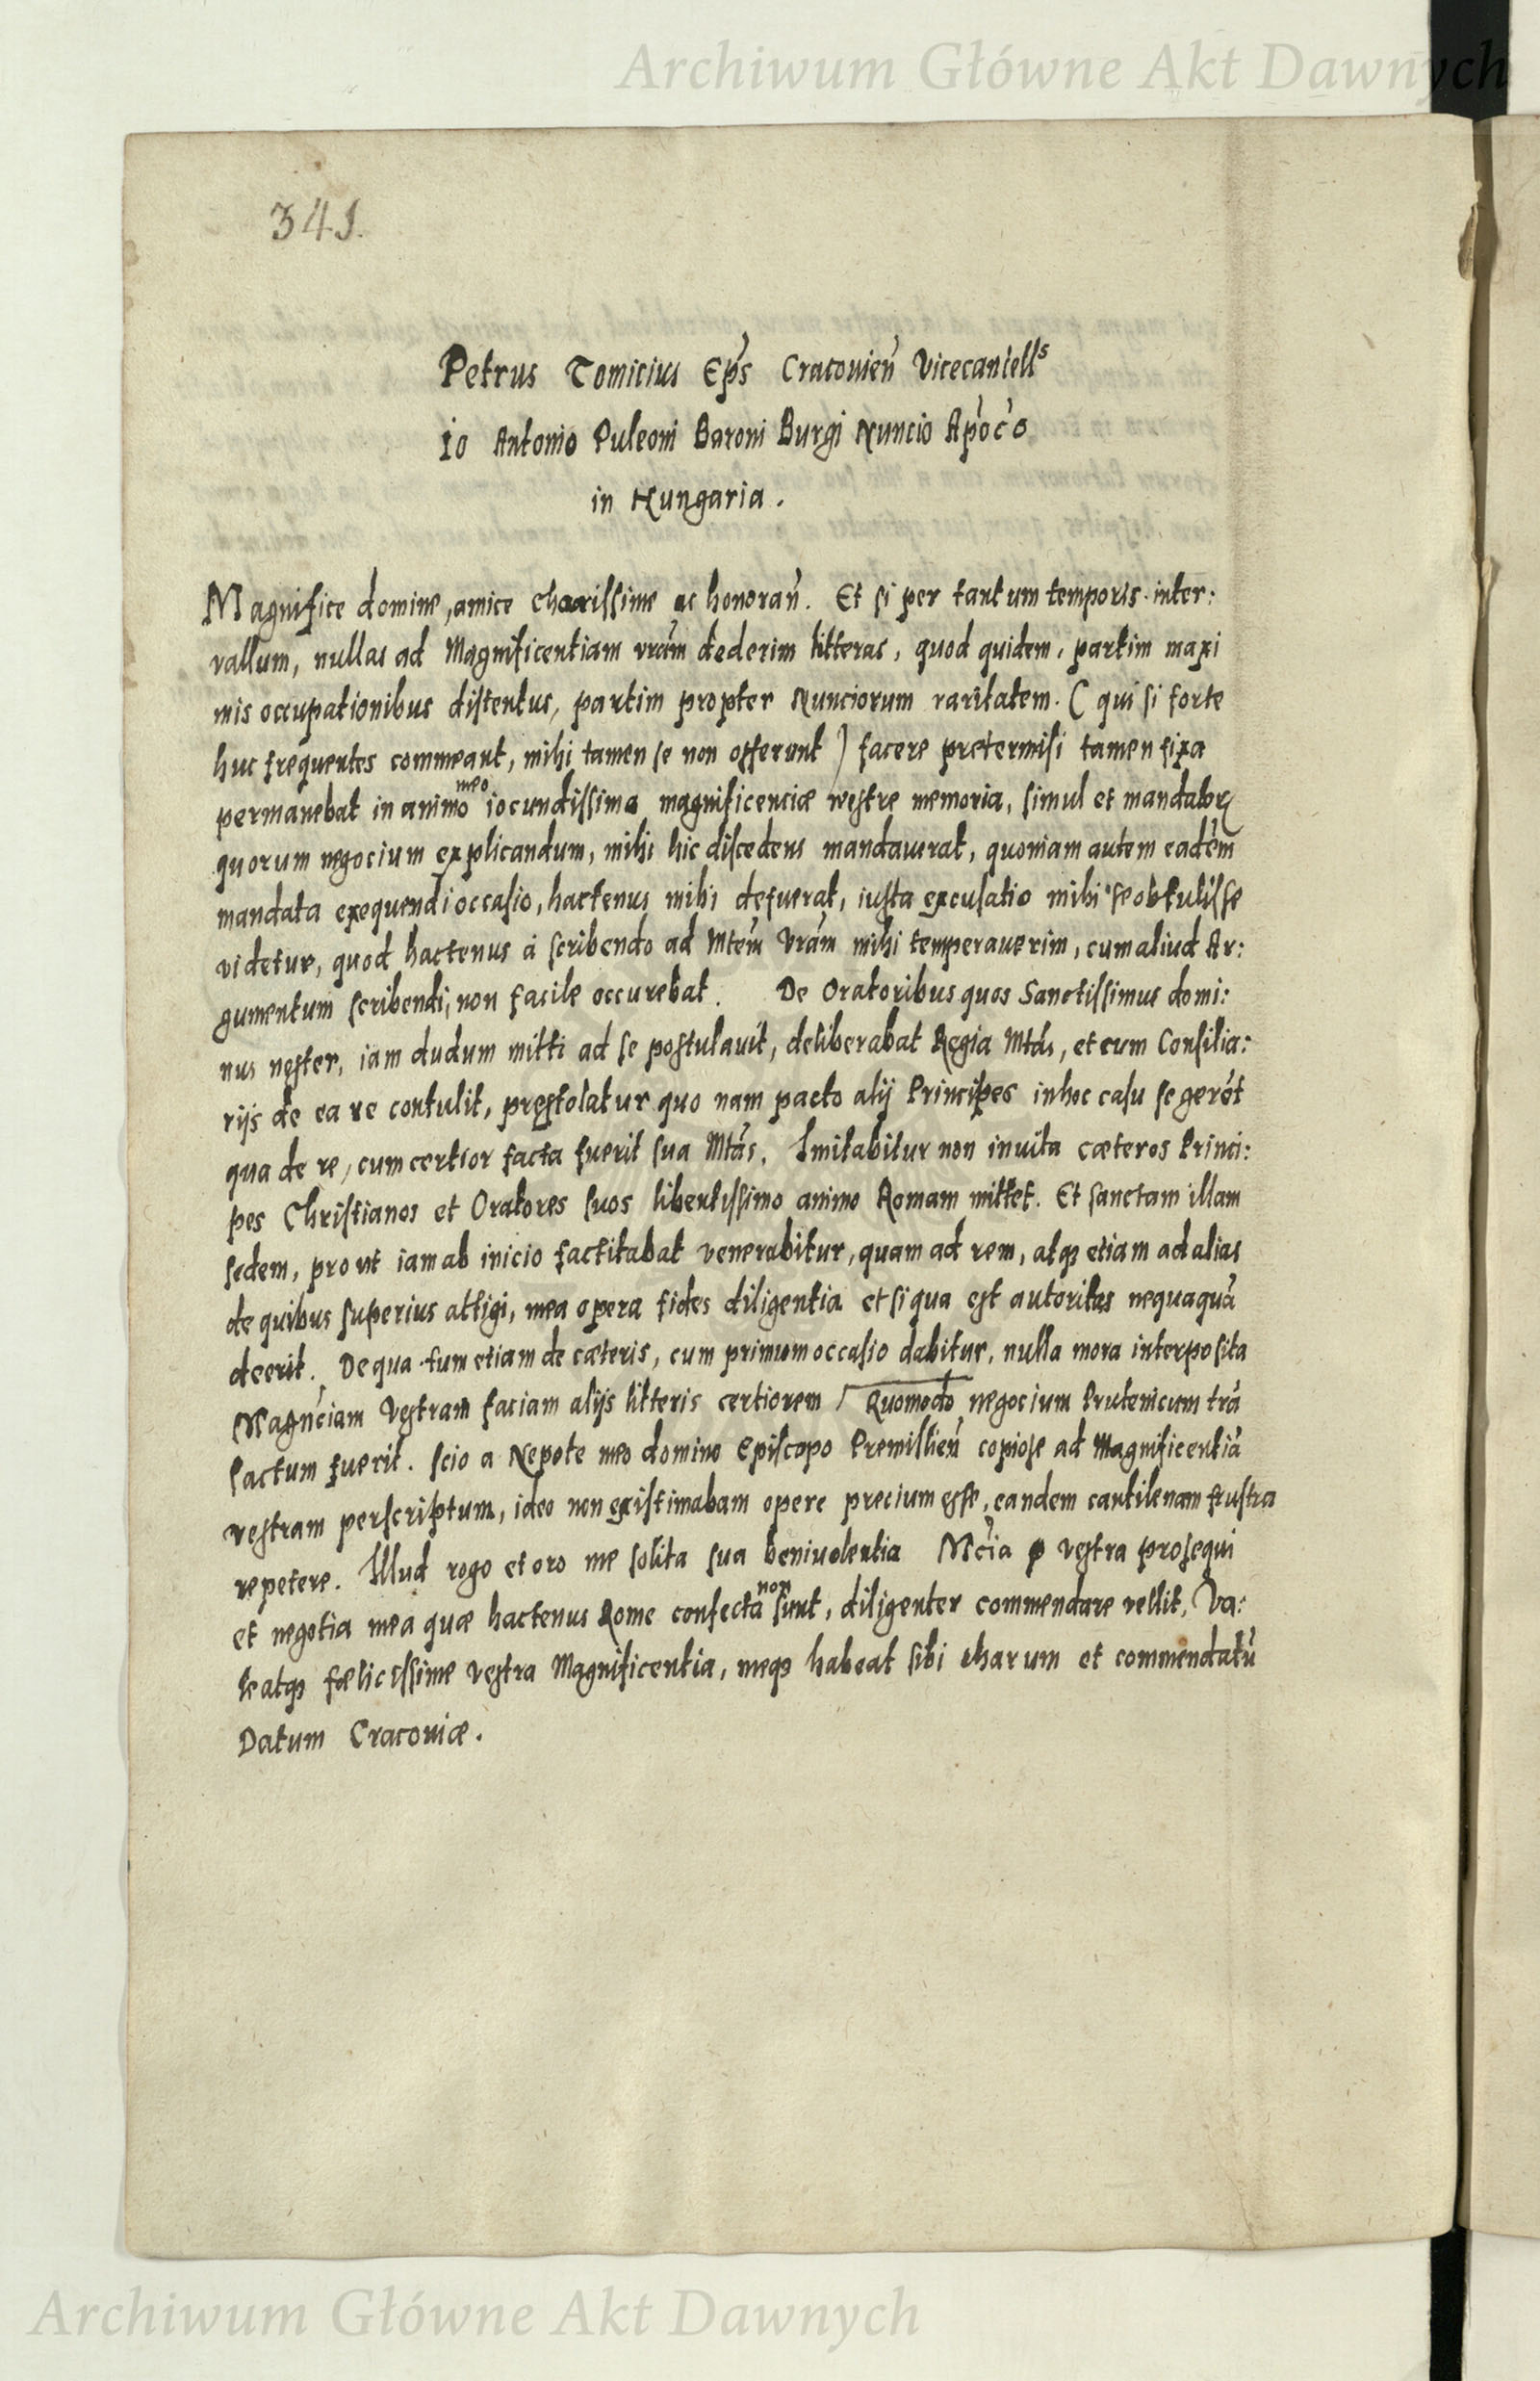 Archiwum Główne Akt Dawnych
341.
Petrus Tomicius Ep̃s Cracouieñ Vicecancellˢ
Io Antonio Puleoni Baroni Burgi Nuncio Ap̃oc̃o
in Hungaria.
Magnifice domine, amice charissime ac honorañ. Et si per tantum temporis inter:
vallum, nullas ad Magnificentiam vrãm dederim litteras, quod quidem, partim maxi
mis occupationibus distentus, partim propter Nunciorum raritatem. ( qui si forte
huc frequentes commeant, mihi tamen se non offerunt ) facere pretermisi tamen fixa
permanebat in animo meo iocundissima magnificenciæ vestre memoria, simul et mandatorꝝ
quorum negocium explicandum, mihi hic discedens mandauerat, quoniam autem eadem
mandata exequendi occasio, hactenus mihi defuerat, iusta excusatio mihi se obtulisse
videtur, quod hactenus á scribendo ad Mtẽm Vrãm mihi temperauerim, cum aliud Ar:
gumentum scribendi, non facile occurebat. De Oratoribus quos Sanctissimus domi:
nus noster, iam dudum mitti ad se postulauit, deliberabat Regia Mtãs, et cum Consilia:
rijs de ea re contulit, prestolatur quo nam pacto alij Principes in hoc casu se gerẽt
qua de re, cum certior facta fuerit sua Mtãs. Imitabitur non inuita cæteros Princi:
pes Christianos et Oratores suos libentissimo animo Romam mittet. Et sanctam illam
sedem, pro ut iam ab inicio factitabat venerabitur, quam ad rem, atqꝫ etiam ad alias
de quibus superius attigi, mea opera fides diligentia et si qua est autoritas nequaquã
deerit. De qua tum etiam de cæteris, cum primum occasio dabitur, nulla mora interposita
Magnc̃iam Vestram faciam alijs litteris certiorem / Quomodo negocium Prutenicum trã
sactum fuerit. Scio a Nepote meo domino Episcopo Premislieñ copiose ad Magnificentiã
vestram perscriptum, ideo non existimabam opere precium esse, eandem cantilenam frustra
repetere. Illud rogo et oro me solita sua beniuolentia Mc̃ia vestra prosequi
et negotia mea quæ hactenus Rome confecta non sunt, diligenter commendare vellit, Va:
leatqꝫ fælicissime Vestra Magnificentia, meqꝫ habeat sibi charum et commendatũ
Datum Cracouiæ.
Archiwum Główne Akt Dawnych